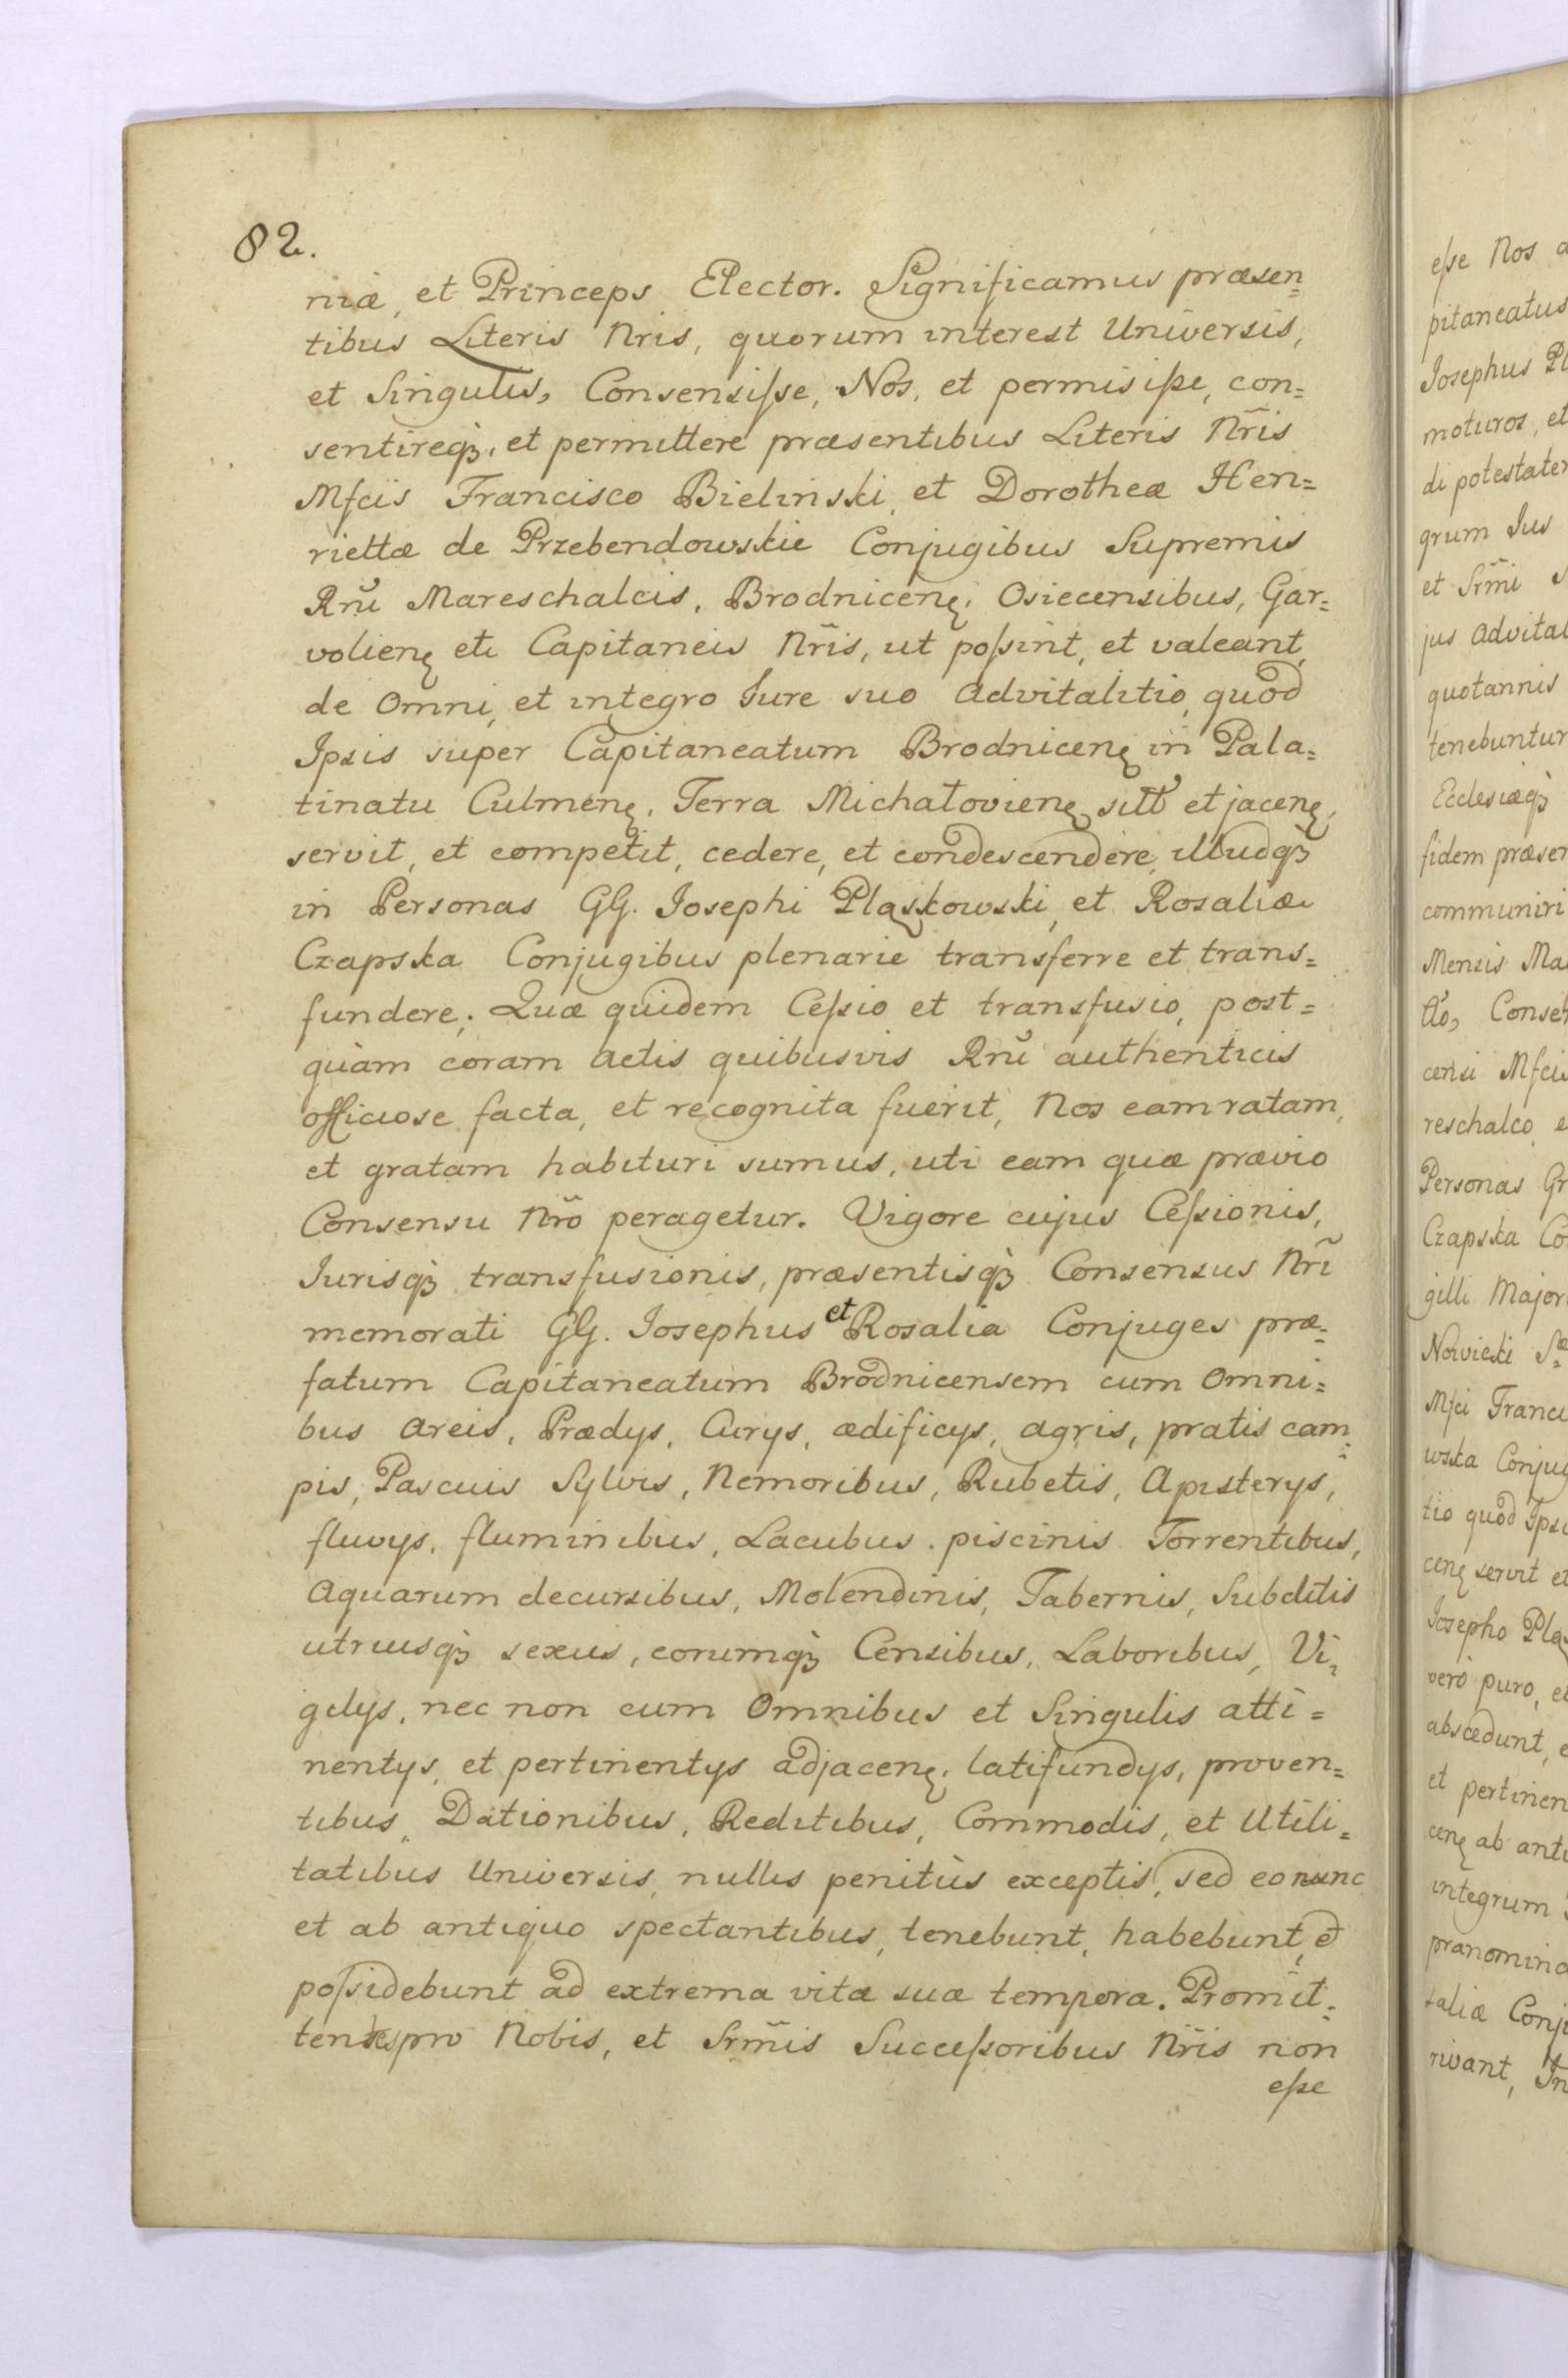 82.
niæ, et Princeps Elector. Significamus præsen=
tibus Literis Nris, quorum interest Universis,
et Singulis, Consensiſse, Nos, et permisiſse, con=
sentireqꝫ, et permittere præsentibus Literis Nr̃is
Mfcis Francisco Bielinski, et Dorotheæ Hen=
riettæ de Przebendowskie Conjugibus Supremis
Rnũ Mareschalcis, Brodnicenę, Osiecensibus, Gar=
volienę etc Capitaneis Nr̃is, ut poſsint, et valeant,
de Omni, et integro Jure suo Advitalitio, quod
Ipsis super Capitaneatum Brodnicenę in Pala=
tinatu Culmenę, Terra Michałovienę sitt̃ et jacenę,
servit, et competit, cedere, et condescendere, illudqꝫ
in Personas GG. Josephi Pląskowski, et Rosaliæ
Czapska Conjugibus plenarie transferre et trans=
fundere; Quæ quidem Ceſsio et transfusio, post=
quàm coram Actis quibusvis Rnũ authenticis
officiose facta, et recognita fuerit, Nos eam ratam,
et gratam habituri sumus, uti eam quæ prævio
Consensu Nrõ peragetur. Vigore cujus Ceſsionis,
Jurisqꝫ transfusionis, præsentisqꝫ Consensus Nrĩ
memorati GG. Josephus et Rosalia Conjuges præ=
fatum Capitaneatum Brodnicensem cum Omni=
bus areis, Prædys, Curys, ædificys, agris, pratis cam=
pis, Pascuis Sylvis, Nemoribus, Rubetis, Apisterys,
fluvys, fluminibus, Lacubus. piscinis Torrentibus,
Aquarum decursibus, Molendinis, Tabernis, Subditis
utriusqꝫ sexus, eorumqꝫ Censibus, Laboribus, Vi=
gilys, nec non cum Omnibus et Singulis atti=
nentys, et pertinentys adjacenę, latifundys, proven=
tibus, Dationibus, Reditibus, Commodis, et Utili=
tatibus Universis, nullis penitùs exceptis, sed eo nunc
et ab antiquo spectantibus, tenebunt, habebunt, et
poſsidebunt ad extrema vitæ suæ tempora. Promit=
tentes pro Nobis, et Srm̃is Succeſsoribus Nr̃is non
eſse
eſse Nos
pitaneatus
Josephus Pl
moturos, et
di potestatem
grum Jus
et Srm̃i
jus Advital
quotannis
tenebuntur
Ecclesiæqꝫ
fidem præsen
communiri
Mensis Ma
Consen
censi Mfcis
reschalco, e
Personas Gr
Czapska Co
gilli Major
Nowicki
Mfci Franci
wska Conjug
tio quod Ipsi
cenę servit et
Josepho Plą
verò puro, et
abscedunt, e
et pertinen
cenę ab anti
integrum
prænomina
saliæ Conj
rivant, In